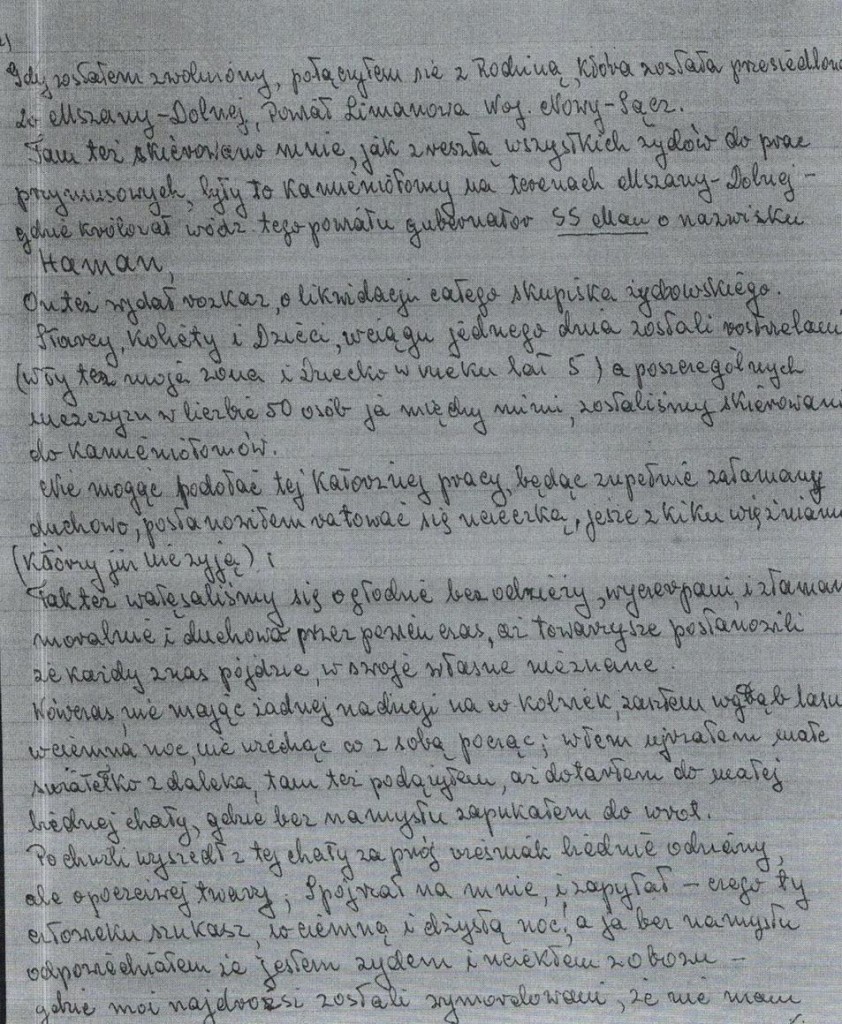 Gdy zostałem zwolniony, połączyłem sie z Rodziną, która została przesiedlona
do Mszany-Dolnej, Powiat Limanowa Woj. Nowy-Sącz.
Tam też skierowano mnie, jak zresztą wszystkich żydów do prac
przymusowych, były to kamieniołomy na terenach Mszany-Dolnej -
gdzie królował wódz tego powiatu gubernator SS Man o nazwisku
Haman,
On też wydał rozkaz, o likwidacji całego skupiska żydowskiego.
Starcy, Kobiety i Dzieci, wciągu jednego dnia zostali rostrzelani
(były też moja żona i Dziecko w wieku lat 5) a poszczególnych
mężczyzn w liczbie 50 osób ja między nimi, zostaliśmy skierowani
do kamieniołomów.
Nie mogąc podołać tej katorżnej pracy, będąc zupełnie załamany
duchowo, postanowiłem ratować się ucieczką, jesze z kiku więźniami
(Którzy już nie żyją);
Tak też wałęsaliśmy się o głodnie bez odzieży, wyczerpani, i złamani
moralnie i duchowo przez pewien czas, aż towarzysze postanowili
że każdy z nas pójdzie, w swoje własne nieznane.
Wówczas, nie mając żadnej nadzieji na co kolwiek, zaszłem wgłąb lasu
wciemna noc, nie wiedząc co z sobą począc; wtem ujrzałem małe
światełko z daleka, tam też podążyłem, aż dotarłem do małej
biednej chaty, gdzie bez namysłu zapukałem do wrot.
Po chwili wyszedł z tej chaty za próg wieśniak biednie odziany,
ale o poczciwej twarzy; Spojrzał na mnie, i zapytał - czego ty
człowieku szukasz, w ciemną i dżystą noc!, a ja bez namysłu
odpowiedziałem że jestem żydem i uciekłem z obozu -
gdzie moi najdrożsi zostali wymordowani, że nie mam